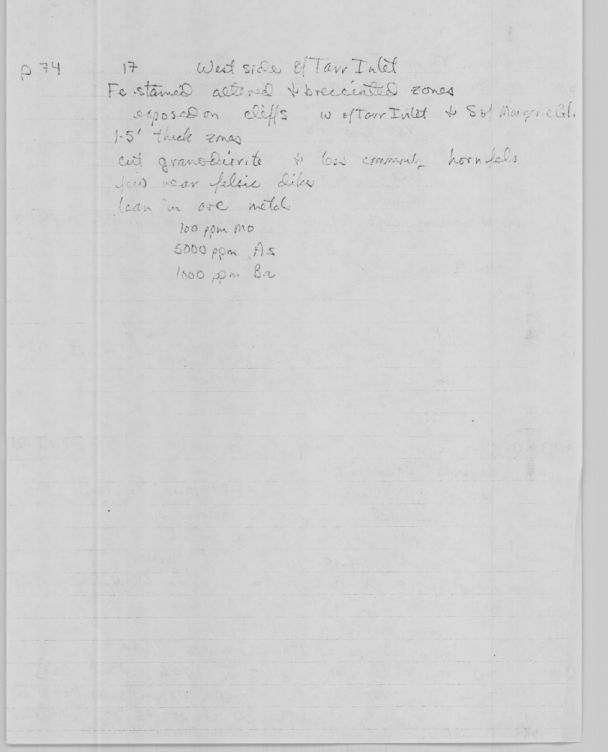 p 74 17 West side of Tarr Inlet
Fe stained altered & brecciated zones
exposed on cliffs W of Tarr Inlet & S of Margerie Gl.
1-5' thick zones
cut granodiorite & less commonly hornfels
few near felsic dikes
lean in ore metal
100 ppm Mo
5000 ppm As
1000 ppm Ba